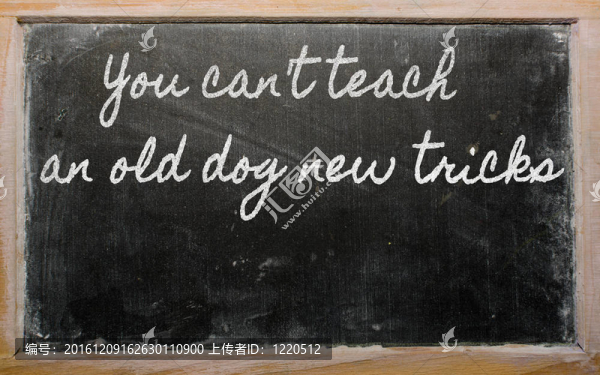 You can't teach
an old dog new tricks
汇图网
www.huitu.com
编号：20161209162630110900 上传者ID：1220512